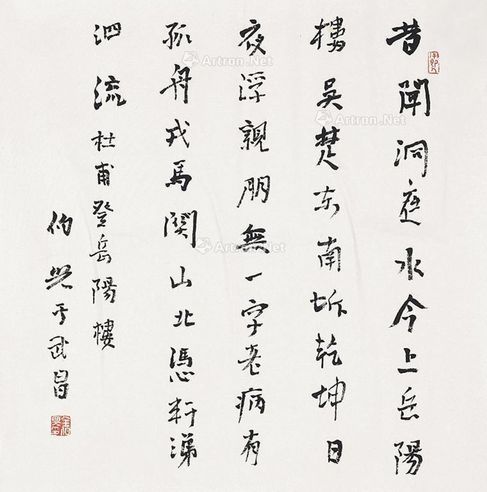 昔聞洞庭水今上岳陽
樓吳楚东南坼乾坤日
夜浮親朋無一字老病有
孤舟戎馬関山北憑軒涕
泗流
杜甫登岳陽樓
伯㷼于武昌
Artron.Net
Artron.Net
Artron.Net
Artron.Net